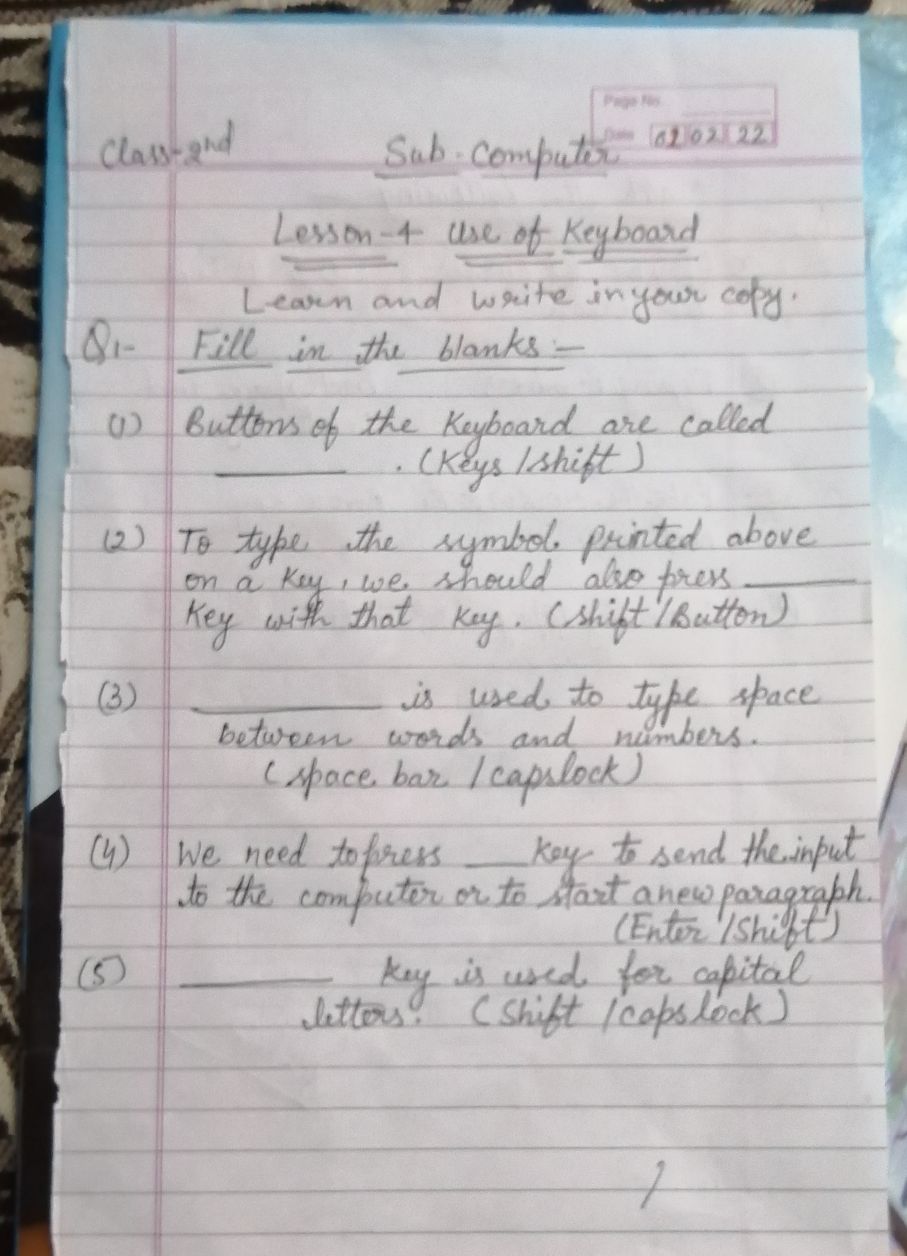 Page No.
Date 02 02 22
Class-2nd Sub-Computer
Lesson-4 Use of Keyboard
Learn and write in your copy.
Q1- Fill in the blanks:-
(1) Buttons of the Keyboard are called
______ . (Keys / shift)
(2) To type the symbol printed above
on a Key, we should also press ______
Key with that key. (shift / Button)
(3) ______ is used to type space
between words and numbers.
(space bar / capslock)
(4) We need to press ___ key to send the input
to the computer or to start a new paragraph.
(Enter / Shift)
(5) ______ key is used for capital
letters. (Shift / capslock)